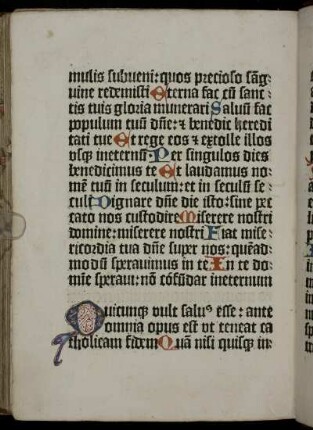 mulis subueni: quos precioso sāg-
uine redemisti Eterna fac cū sanc-
tis tuis gloria munerari Saluū fac
populum tuū dn̄e: ⁊ benedic heredi
tati tue Et rege eos ⁊ extolle illos
vsqꝫ ineternū. Per singulos dies
benedicimus te Et laudamus no-
mē tuū in seculum: et in seculū se-
culi Dignare dn̄e die isto: sine pec
cato nos custodire Miserere nostri
domine: miserere nostri Fiat mise-
ricordia tua dn̄e super nos: quēad-
modū sperauimus in te In te do-
mīe speraui: nō cōfūdar ineternum
Quicunqꝫ vult saluꝰ esse: ante
omnia opus est vt teneat ca
tholicam fidem Quā nisi quisqꝫ in-